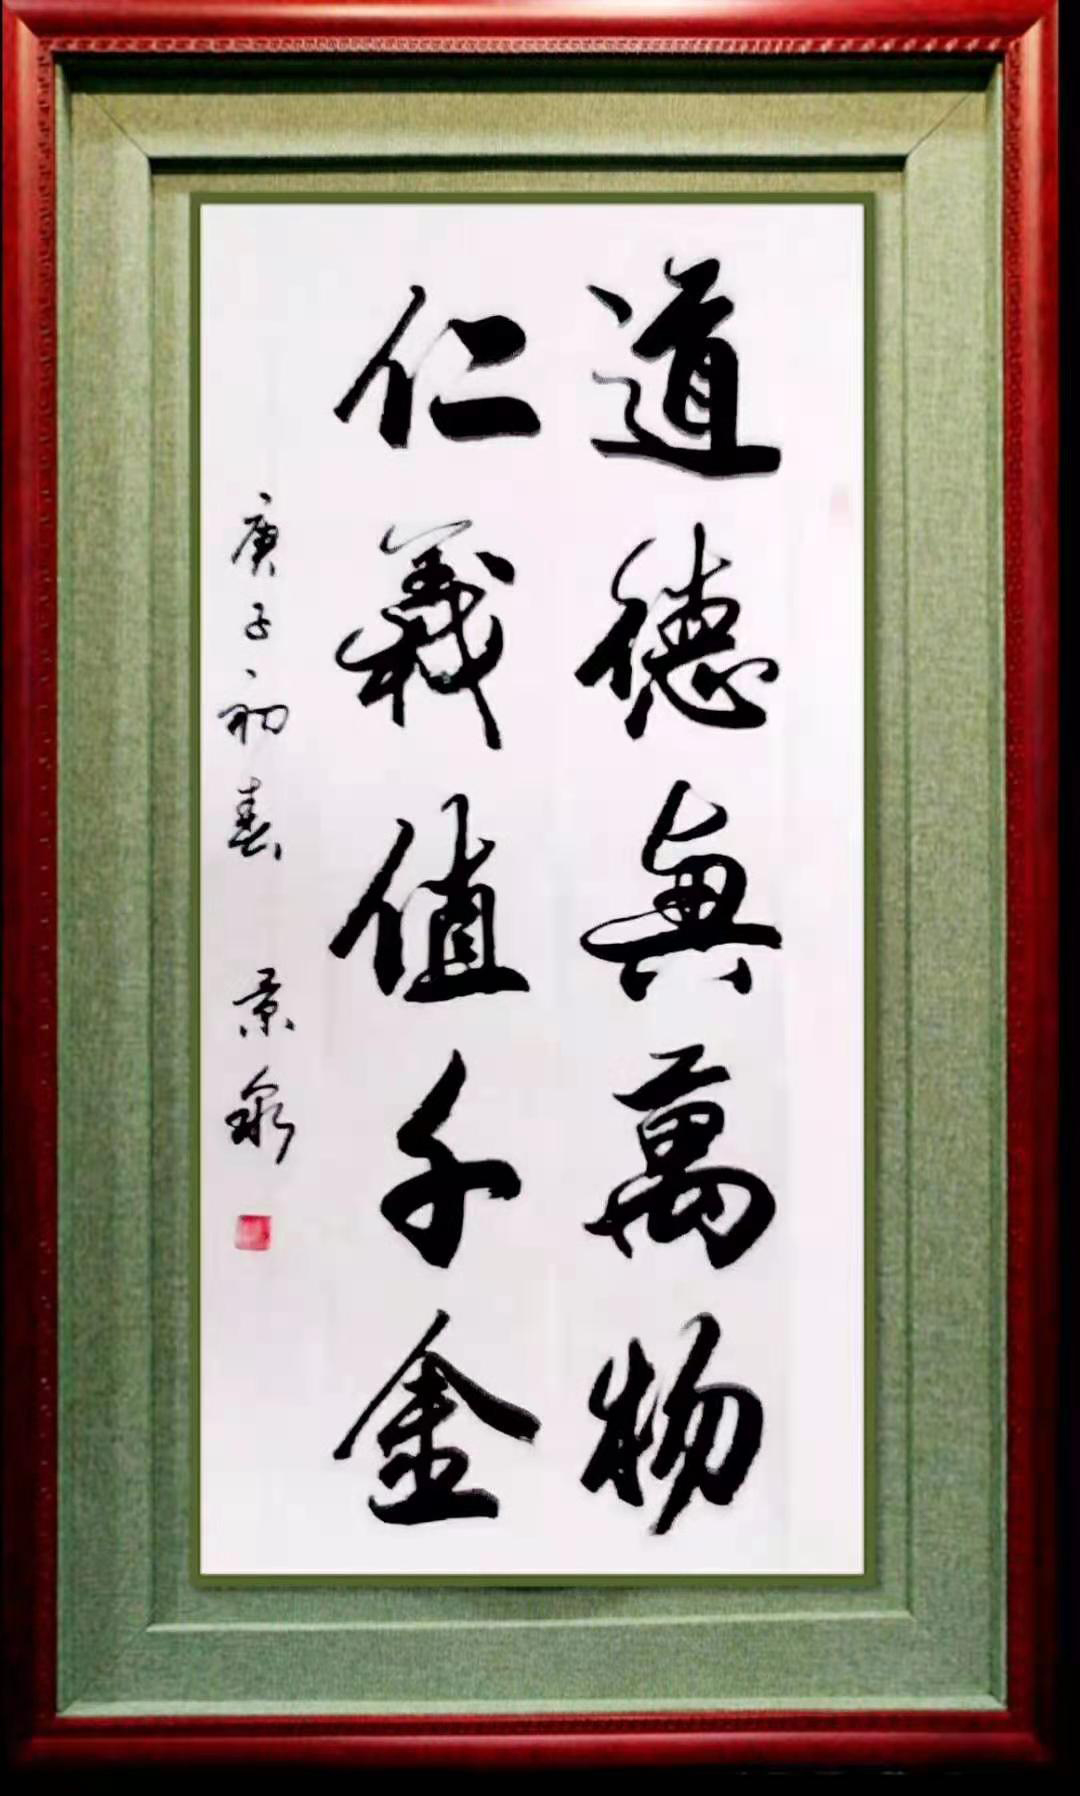 道德無萬物
仁義值千金
庚子初春 景泉